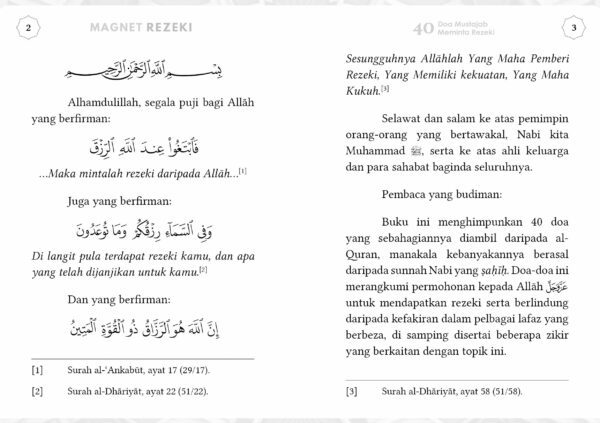 2
MAGNET REZEKI
بِسْمِ ٱللَّهِ ٱلرَّحْمَٰنِ ٱلرَّحِيمِ
Alhamdulillah, segala puji bagi Allāh
yang berfirman:
فَٱبْتَغُوا۟ عِندَ ٱللَّهِ ٱلرِّزْقَ
...Maka mintalah rezeki daripada Allāh...[1]
Juga yang berfirman:
وَفِى ٱلسَّمَآءِ رِزْقُكُمْ وَمَا تُوعَدُونَ
Di langit pula terdapat rezeki kamu, dan apa
yang telah dijanjikan untuk kamu.[2]
Dan yang berfirman:
إِنَّ ٱللَّهَ هُوَ ٱلرَّزَّاقُ ذُو ٱلْقُوَّةِ ٱلْمَتِينُ
[1] Surah al-‘Ankabūt, ayat 17 (29/17).
[2] Surah al-Dhāriyāt, ayat 22 (51/22).
40 Doa Mustajab
Meminta Rezeki
3
Sesungguhnya Allāhlah Yang Maha Pemberi
Rezeki, Yang Memiliki kekuatan, Yang Maha
Kukuh.[3]
Selawat dan salam ke atas pemimpin
orang-orang yang bertawakal, Nabi kita
Muhammad ﷺ, serta ke atas ahli keluarga
dan para sahabat baginda seluruhnya.
Pembaca yang budiman:
Buku ini menghimpunkan 40 doa
yang sebahagiannya diambil daripada al-
Quran, manakala kebanyakannya berasal
daripada sunnah Nabi yang ṣaḥīḥ. Doa-doa ini
merangkumi permohonan kepada Allāh عَزَّوَجَلَّ
untuk mendapatkan rezeki serta berlindung
daripada kefakiran dalam pelbagai lafaz yang
berbeza, di samping disertai beberapa zikir
yang berkaitan dengan topik ini.
[3] Surah al-Dhāriyāt, ayat 58 (51/58).